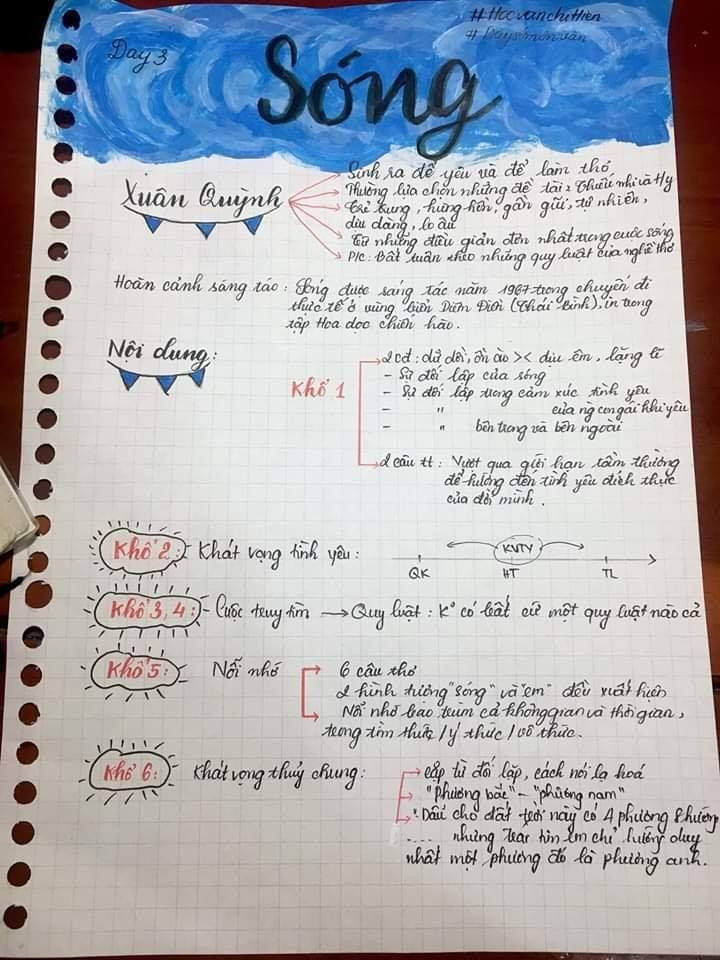 #Hocvanchihien
Day 3
#Days1mônvăn
Sóng
Xuân Quỳnh
Sinh ra để yêu và để làm thơ
Thường lựa chọn những đề tài: Thiếu nhi và Hy
Trẻ trung, hứng hên, gần gũi, tự nhiên,
dịu dàng, lo âu
Từ những điều giản đơn nhất trong cuộc sống
P/c: Bất tuân theo những quy luật của nghề thơ
Hoàn cảnh sáng táo: Sóng được sáng tác năm 1967 trong chuyến đi
thức tế ở vùng biển Diêm Điền (Thái Bình), in trong
tập Hoa dọc chiến hào.
Nội dung:
Khổ 1
2 cđ: dữ dội, ồn ào >< dịu êm, lặng lẽ
- Sự đối lập của sóng
- Sự đối lập trong cảm xúc tình yêu
- " của ng con gái khi yêu
- " bên trong và bên ngoài
2 câu tt: Vượt qua giới hạn tầm thường
để hướng đến tình yêu đích thực
của đời mình.
Khổ 2: Khát vọng tình yêu: KVTY
QK HT TL
Khổ 3,4: Cuộc truy tìm → Quy luật: K° có bất cứ một quy luật nào cả
Khổ 5: Nỗi nhớ 6 câu thơ
2 hình tượng "sóng" và "em" đều xuất hiện
Nỗi nhớ bao trùm cả không gian và thời gian,
trong tìm thức / ý thức / vô thức.
Khổ 6: Khát vọng thuỷ chung: cặp từ đối lập, cách nói lạ hoá
"phương bắc" - "phương nam"
"Dẫu cho đất trời này có 4 phương 8 hướng
.... nhưng trái tim em chỉ hướng duy
nhất một phương đó là phương anh.